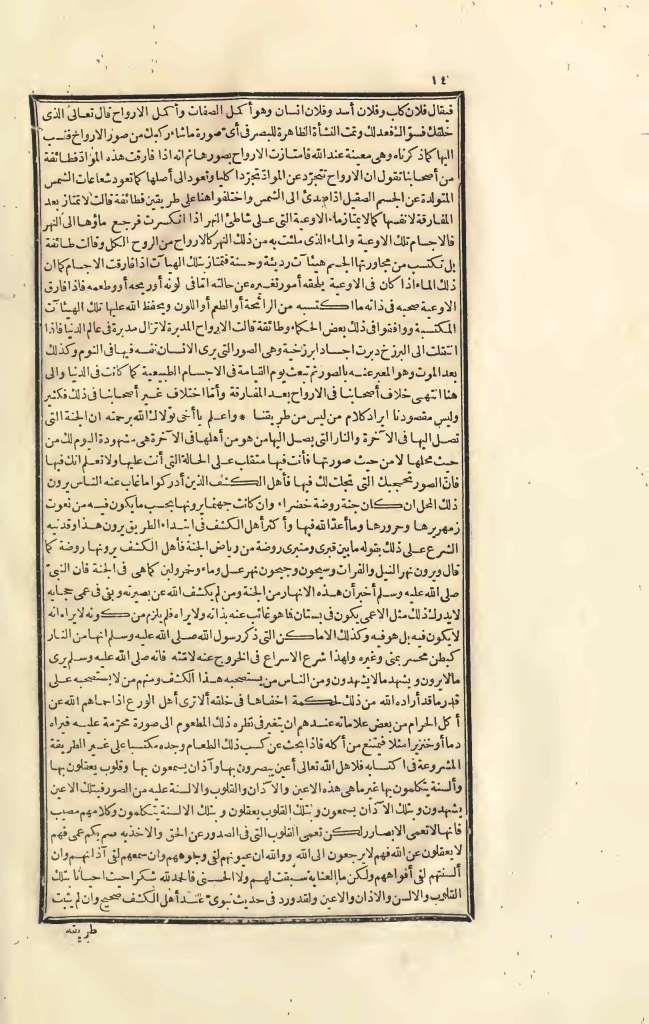 ١٤
فيقال فلان كاب وفلان أسد وفلان انسان وهو أكمل الصفات وأكمل الارواح قال تعالى الذى
خلقك فسوّاك فعدلك وتمت النشأة الظاهرة للبصر فى أى صورة ماشاء ركبك من صور الارواح فتنسب
اليها كما ذكرناه وهى معينة عند الله فامتازت الارواح بصورها ثم انه اذا فارقت هذه الموادّ فطائفة
من أصحابنا تقول ان الارواح تتجرّد عن الموادّ تجرّدا كليا وتعود الى أصلها كما تعود شعاعات الشمس
المتولدة عن الجسم الصقيل اذا صدئ الى الشمس واختلفوا هنا على طريقين فطائفة قالت لا تمتاز بعد
المفارقة لانفسها كما لا يمتاز ماء الاوعية التى على شاطئ النهر اذا انكسرت فرجع ماؤها الى النهر
فالاجسام تلك الاوعية والماء الذى ملئت به من ذلك النهر كالارواح من الروح الكل وقالت طائفة
بل تكتسب من مجاورتها الجسم هيئات رديئة وحسنة فتمتاز بتلك الهيات اذا فارقت الاجسام كما ان
ذلك الماء اذا كان فى الاوعية يلحقه أمور تغيره عن حالته اما فى لونه أو ريحه أو وطعمه فاذا فارق
الاوعية صحبه فى ذاته ما اكتسبه من الرائحة أو الطعم أو اللون ويحفظ الله عليها تلك الهيئات
المكتسبة ووافقوا فى ذلك بعض الحكماء وطائفة قالت الارواح المدبرة لا تزال مدبرة فى عالم الدنيا فاذا
انتقلت الى البرزخ دبرت اجسادا برزخية وهى الصور التى يرى الانسان نفسه فيها فى النوم وكذلك
بعد الموت وهو المعبر عنه بالصور ثم تبعث يوم القيامة فى الاجسام الطبيعية كما كانت فى الدنيا والى
هنا انتهى خلاف أصحابنا فى الارواح بعد المفارقة وأمّا اختلاف غير أصحابنا فى ذلك فكثير
وليس مقصودنا ايراد كلام من ليس من طريقنا * واعلم يا أخى تولاك الله برحمته ان الجنة التى
تصل اليها فى الآخرة والنار التى يصل اليها من هو من أهلها فى الآخرة هى مشهودة اليوم لك من
حيث محلها لا من حيث صورتها فأنت فيها متقلب على الحالة التى أنت عليها ولا تعلم انك فيها
فانّ الصور تحجبك التى تجلت لك فيها فأهل الكشف الذين أدركوا ما غاب عنه الناس يرون
ذلك المحل ان كان جنة روضة خضراء وان كانت جهنما يرونها بحسب ما يكون فيه من نعوت
زمهريرها وحرورها وما أعدّ الله فيها وأكثر أهل الكشف فى ابتداء الطريق يرون هذا وقد نبه
الشرع على ذلك بقوله ما بين قبرى ومنبرى روضة من رياض الجنة فأهل الكشف يرونها روضة كما
قال ويرون نهر النيل والفرات وسيحون وجيحون نهر عسل وماء وخمر ولبن كما هى فى الجنة فان النبىّ
صلى الله عليه وسلم أخبر أن هذه الانهار من الجنة ومن لم يكشف الله عن بصيرته وبقى فى عمى حجابه
لا يدرك ذلك مثل الاعمى يكون فى بستان فما هو غائب عنه بذاته ولا يراه فلم يلزم من كونه لا يراه انه
لا يكون فيه بل هو فيه وكذلك الاماكن التى ذكر رسول الله صلى الله عليه وسلم انها من النار
كبطن محسر بمنى وغيره ولهذا شرع الاسراع فى الخروج عنه لامّته فانه صلى الله عليه وسلم يرى
ما لا يرون ويشهد ما لا يشهدون ومن الناس من يستصحبه هذا الكشف ومنهم من لا يستصحبه على
قدر ما قد أراده الله من ذلك لحكمة اخفاها فى خلقه ألا ترى أهل الورع اذا حماهم الله عن
أكل الحرام من بعض علاماته عندهم ان يتغير فى نظره ذلك المطعوم الى صورة محرّمة عليه فيراه
دما أو خنزيرا مثلا فيمتنع من أكله فاذا بحث عن كسب ذلك الطعام وجده مكتسبا على غير الطريقة
المشروعة فى اكتسابه فلاهل الله تعالى أعين يبصرون بها وآذان يسمعون بها وقلوب يعقلون بها
وألسنة يتكلمون بها غير ما هى هذه الاعين والآذان والقلوب والالسنة عليه من الصور فبتلك الاعين
يشهدون وبتلك الآذان يسمعون وبتلك القلوب يعقلون وبتلك الالسنة يتكلمون وكلامهم مصيب
فانها لا تعمى الابصار ولكن تعمى القلوب التى فى الصدور عن الحق والاخذ به صم بكم عمى فهم
لا يعقلون عن الله فهم لا يرجعون الى الله ووالله ان عيونهم لفى وجوههم وان سمعهم لفى آذانهم وان
ألسنتهم لفى أفواههم ولكن ما العناية سبقت لهم ولا الحسنى فالحمد لله شكرا حيث احيانا بتلك
القلوب والالسن والاذان والاعين ولقد ورد فى حديث نبوىّ عند أهل الكشف صحيح وان لم يثبت
طريقه